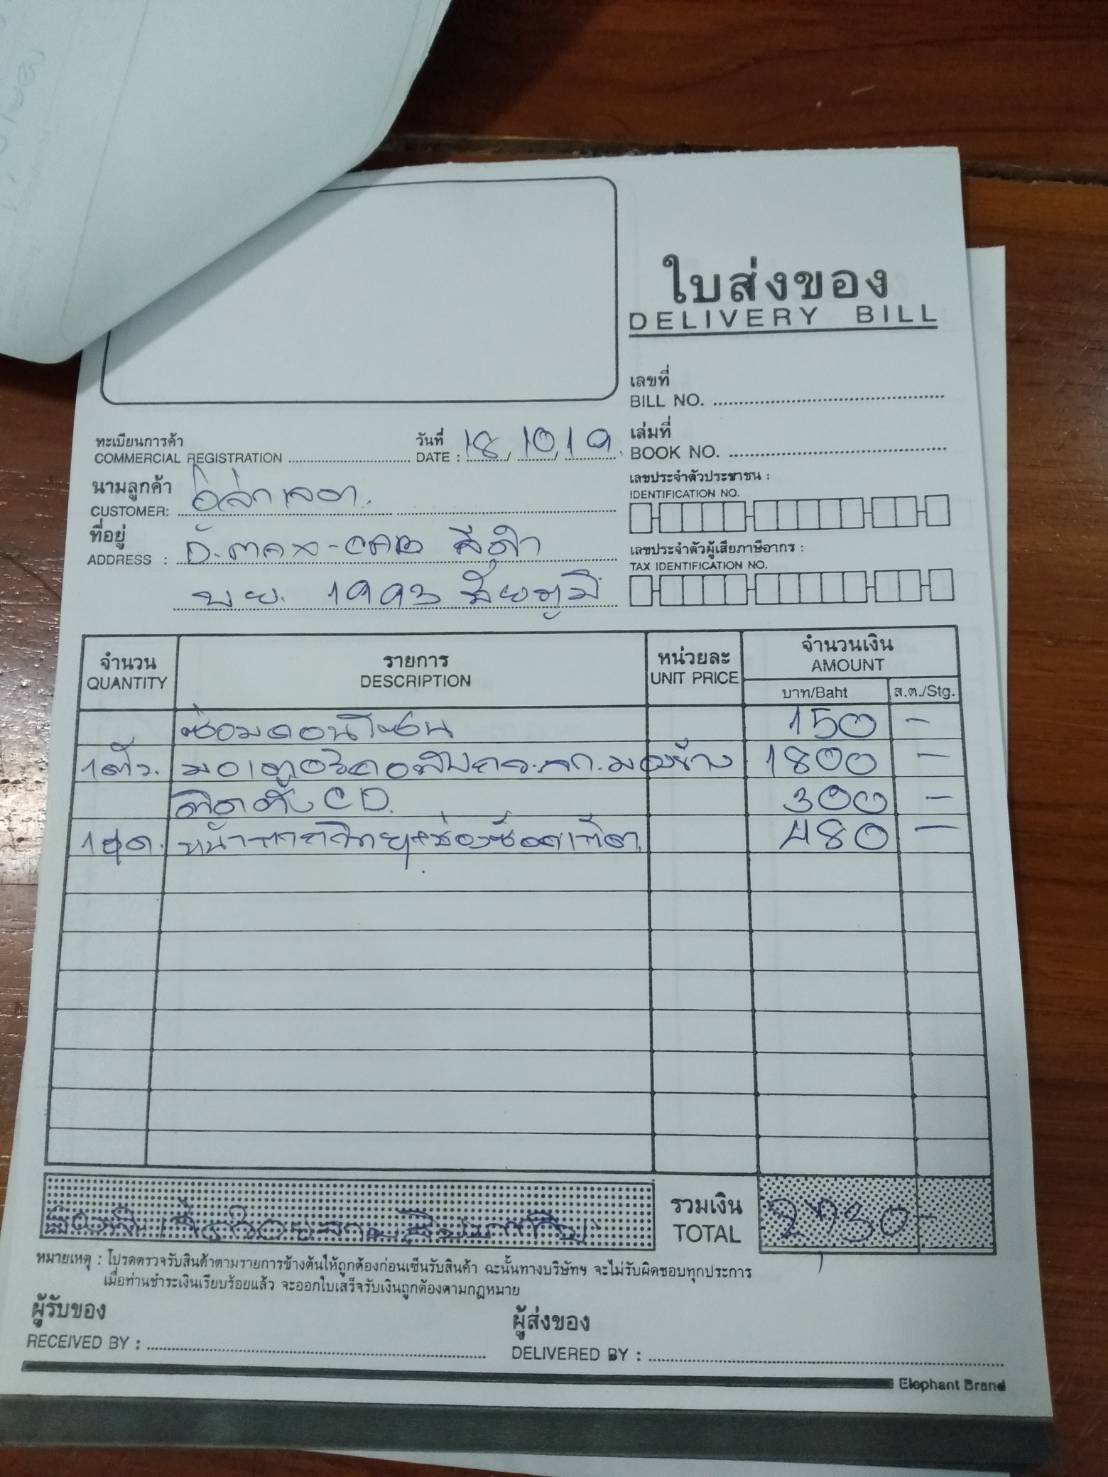 ใบส่งของ
DELIVERY BILL
เลขที่
BILL NO.
ทะเบียนการค้า
COMMERCIAL REGISTRATION
วันที่
DATE : 18, 10, 19.
เล่มที่
BOOK NO.
นามลูกค้า
CUSTOMER:
เลขประจำตัวประชาชน :
IDENTIFICATION NO.
ที่อยู่
ADDRESS : ดี.max-CAB สีดำ
บย. 1993 ชัยภูมิ
เลขประจำตัวผู้เสียภาษีอากร :
TAX IDENTIFICATION NO.
จำนวน
QUANTITY
รายการ
DESCRIPTION
หน่วยละ
UNIT PRICE
จำนวนเงิน
AMOUNT
บาท/Baht ส.ต./Stg.
ซ่อมคอนโซน 150 -
1ตัว. มอเตอร์ มองข้าง 1800 -
ติดตั้ง CD. 300 -
1ชุด. หน้ากากวิทยุ+ช่อง 480 -
รวมเงิน
TOTAL 2730 -
หมายเหตุ : โปรดตรวจรับสินค้าตามรายการข้างต้นให้ถูกต้องก่อนเซ็นรับสินค้า ฉะนั้นทางบริษัทฯ จะไม่รับผิดชอบทุกประการ
เมื่อท่านชำระเงินเรียบร้อยแล้ว จะออกใบเสร็จรับเงินถูกต้องตามกฎหมาย
ผู้รับของ
RECEIVED BY :
ผู้ส่งของ
DELIVERED BY :
Elephant Brand